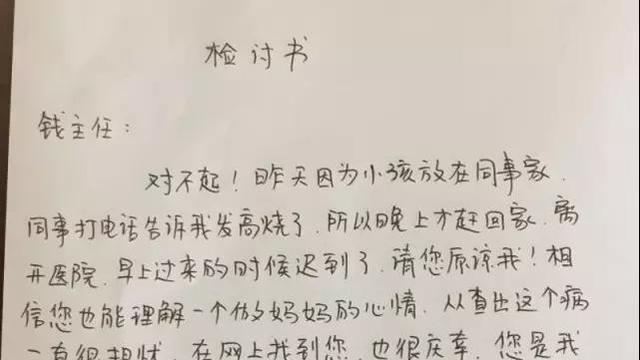 检讨书
钱主任：
对不起！昨天因为小孩放在同事家.
同事打电话告诉我发高烧了.所以晚上才赶回家.离
开医院.早上过来的时候迟到了.请您原谅我！相
信您也能理解一个做妈妈的心情.从查出这个病
一直很担忧.在网上找到您.也很庆幸.您是我